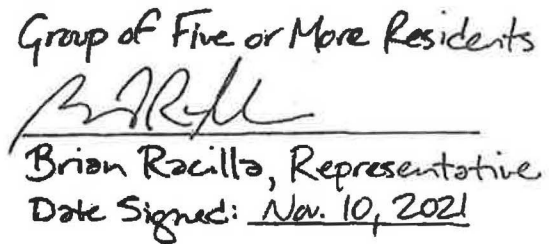 Group of Five or More Residents
Brian Racilla, Representative
Date Signed: Nov. 10, 2021